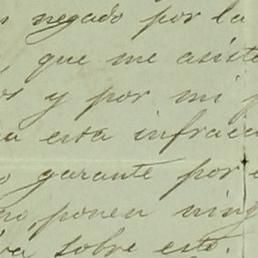 negado por la
que me asiste
y por mi
esta infracc
garante por e
no, ponen ning
sobre esto.